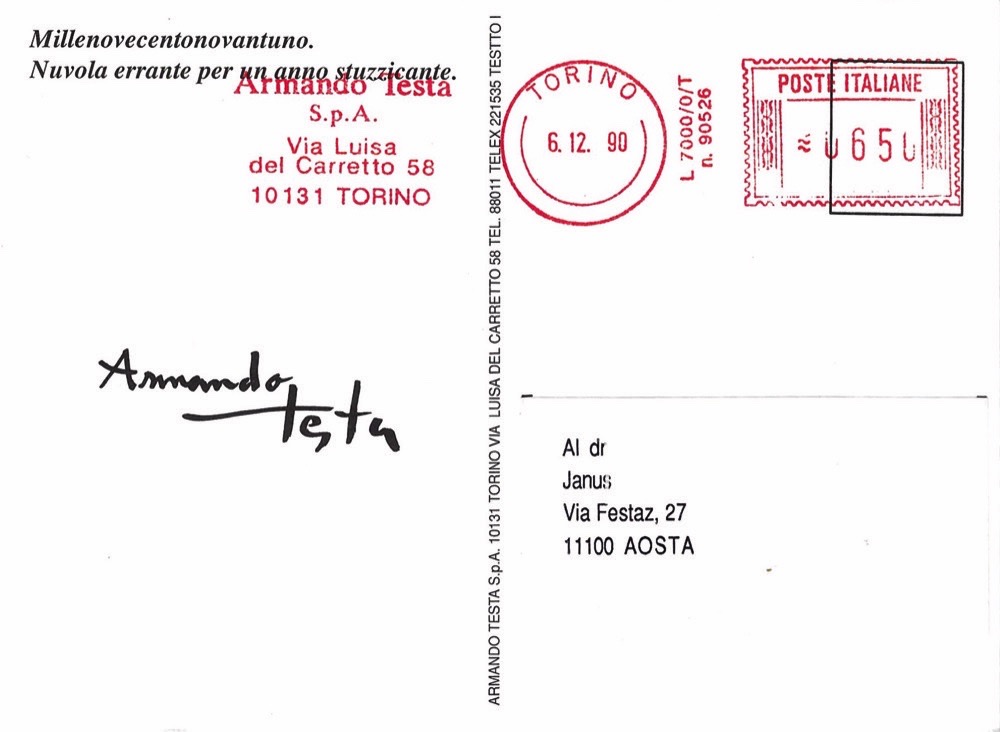 Millenovecentonovantuno.
Nuvola errante per un anno stuzzicante.
Armando Testa
S.p.A.
Via Luisa
del Carretto 58
10131 TORINO
Armando
Testa
ARMANDO TESTA S.p.A. 10131 TORINO VIA LUISA DEL CARRETTO 58 TEL. 88011 TELEX 221535 TESTTO I
TORINO
6. 12. 90
L 7000/0/T
n. 90526
POSTE ITALIANE
650
Al dr
Janus
Via Festaz, 27
11100 AOSTA